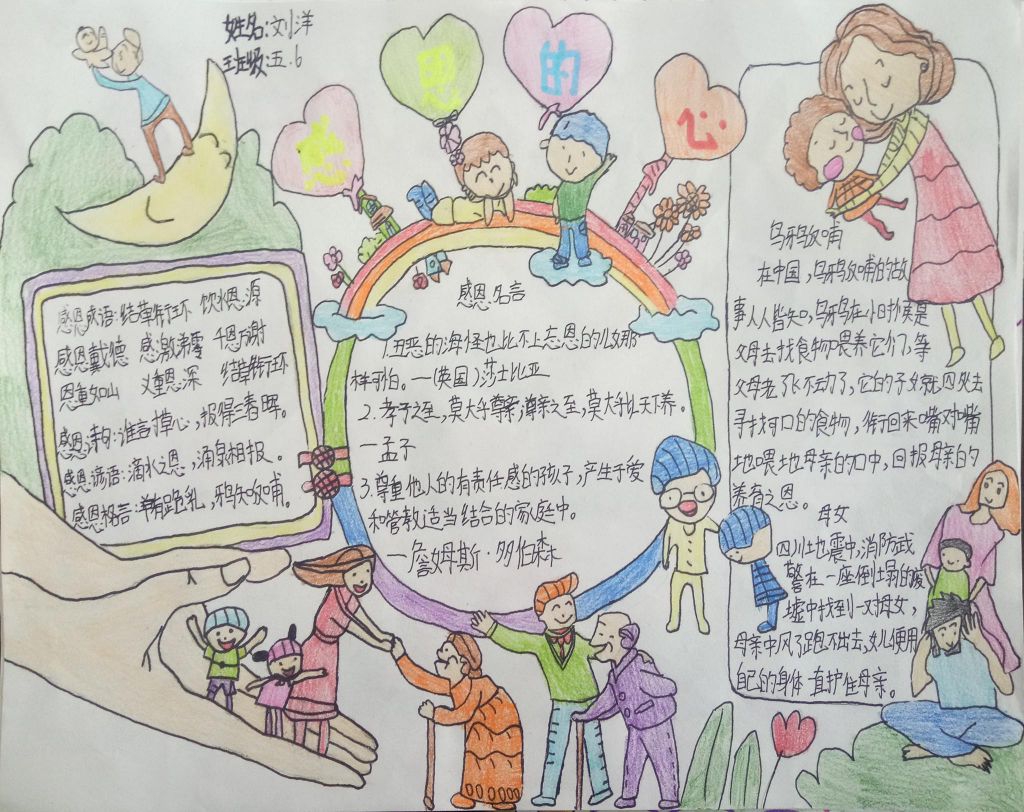 姓名:刘洋
班级:五.6
感恩的心
感恩成语:结草衔环 饮水思源
感恩戴德 感激涕零 千恩万谢
恩重如山 义重恩深 结草衔环
感恩诗句:谁言寸草心,报得三春晖。
感恩谚语:滴水之恩,涌泉相报。
感恩格言:羊有跪乳,鸦知反哺。
感恩名言
1.丑恶的海怪也比不上忘恩的儿女那
样可怕。—(英国)莎士比亚
2.孝子之至,莫大乎尊亲;尊亲之至,莫大乎以天下养。
—孟子
3.尊重他人的有责任感的孩子,产生于爱
和管教适当结合的家庭中。
—詹姆斯·多伯森
乌鸦反哺
在中国,乌鸦反哺的故
事人人皆知,乌鸦在小时候是
父母去找食物喂养它们,等
父母老了飞不动了,它的子女就四处去
寻找可口的食物,衔回来嘴对嘴
地喂地母亲的口中,回报母亲的
养育之恩。
母女
四川地震中,消防武
警在一座倒塌的废
墟中找到一对母女,
母亲中风了跑不出去,女儿便用
自己的身体一直护住母亲。